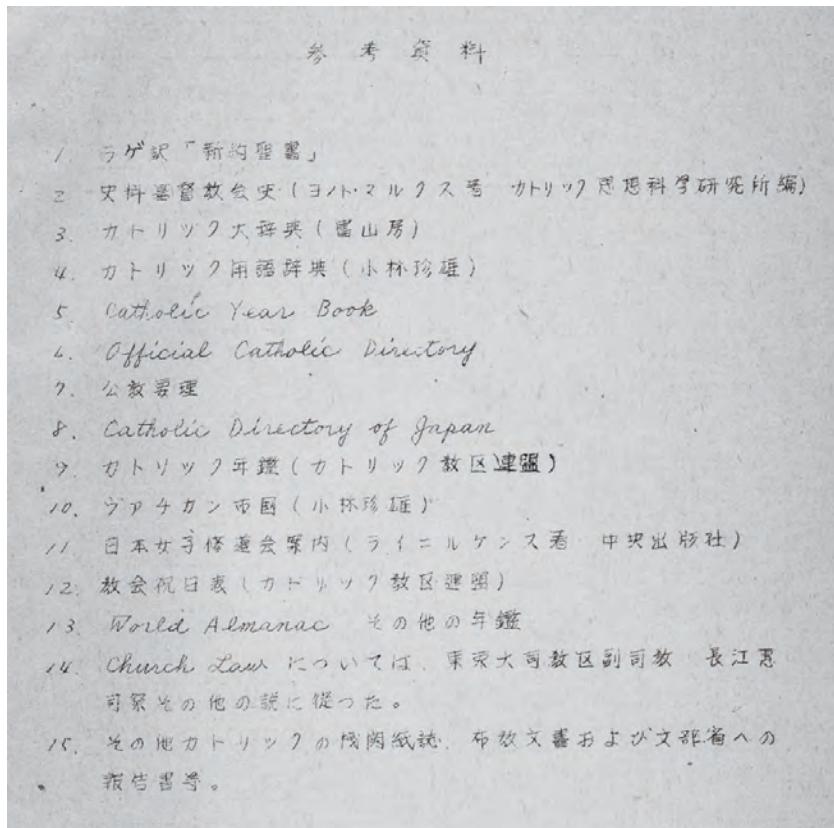 参考資料
1. ラゲ訳「新約聖書」
2 史料基督教会史(ヨハト・マルクス著 カトリック思想科学研究所編)
3. カトリック大辞典(冨山房)
4. カトリック用語辞典(小林珍雄)
5. Catholic Year Book
6. Official Catholic Directory
7. 公教要理
8. Catholic Directory of Japan
9. カトリック年鑑(カトリック教区連盟)
10. ヴァチカン市国(小林珍雄)
11 日本女子修道会案内(ライニルケンス著 中央出版社)
12. 教会祝日表(カトリック教区連盟)
13. World Almanac その他の年鑑
14. Church Law については、東京大司教区副司教 長江恵
司祭その他の説に従つた。
15. その他カトリックの機関紙誌、布教文書および文部省への
報告書等。